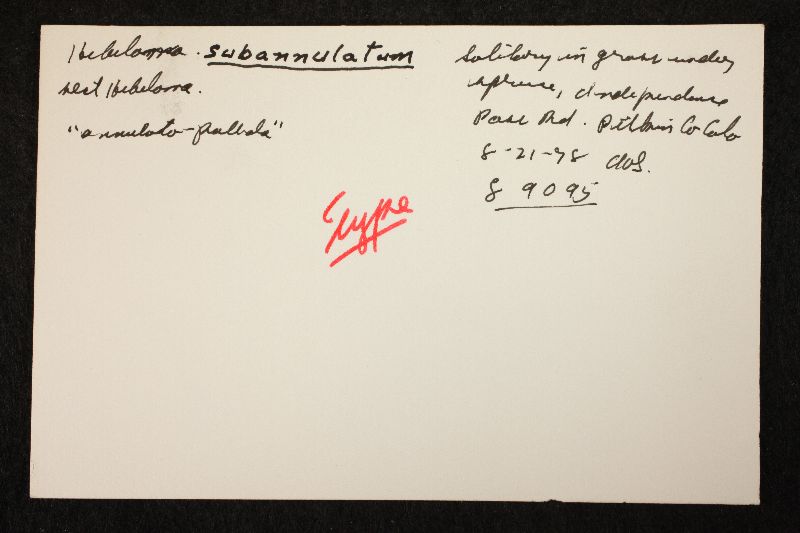 Hebeloma. subannulatum
sect Hebeloma.
"annulato-pallida"
Type
Solitary in grass under
spruce, Independence
Pass Rd. Pitkin Co Colo
8-21-78
89095